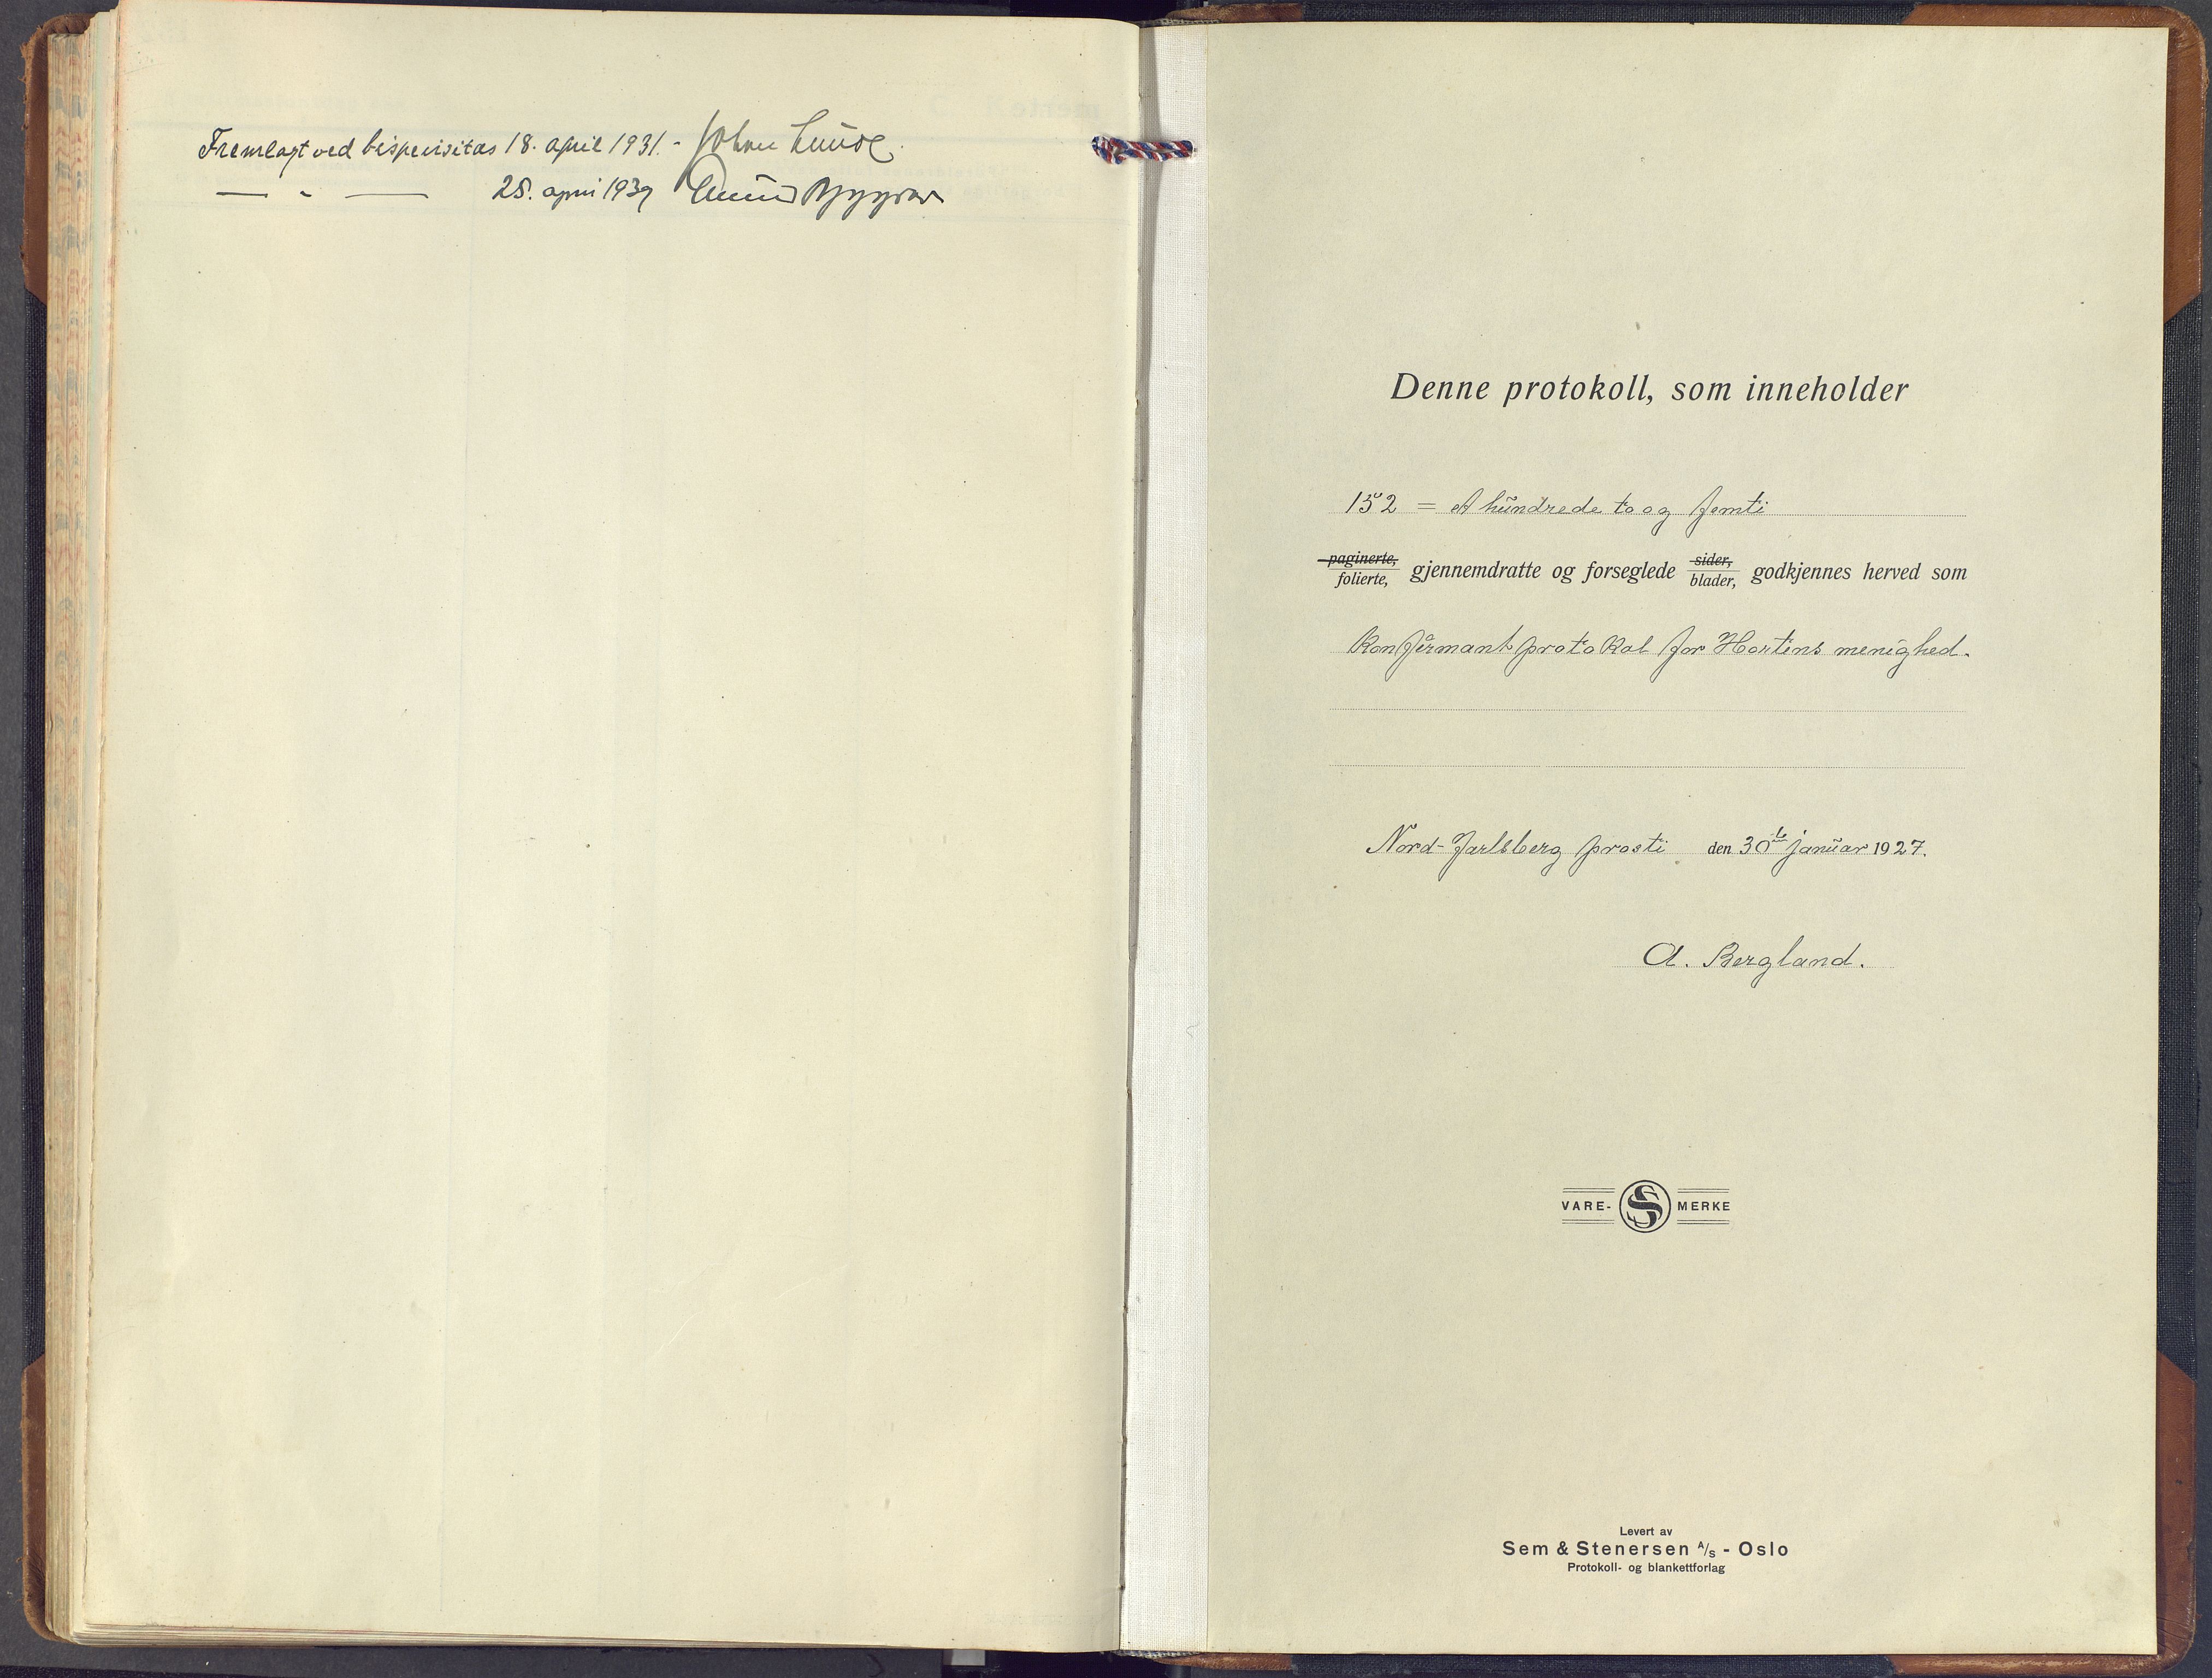 Fremlagt ved bispevisitas 18. april 1931. - Johan Lunde.
— " — 25. april 1939
Denne protokoll, som inneholder
152 = et hundrede to og femti
paginerte,
folierte, gjennemdratte og forseglede sider,
blader, godkjennes herved som
Konfirmantprotokol for Hortens menighed.
Nord-Jarlsberg prosti den 30te januar 1927.
A. Bergland.
VARE- S MERKE
Levert av
Sem & Stenersen A/S - Oslo
Protokoll- og blankettforlag